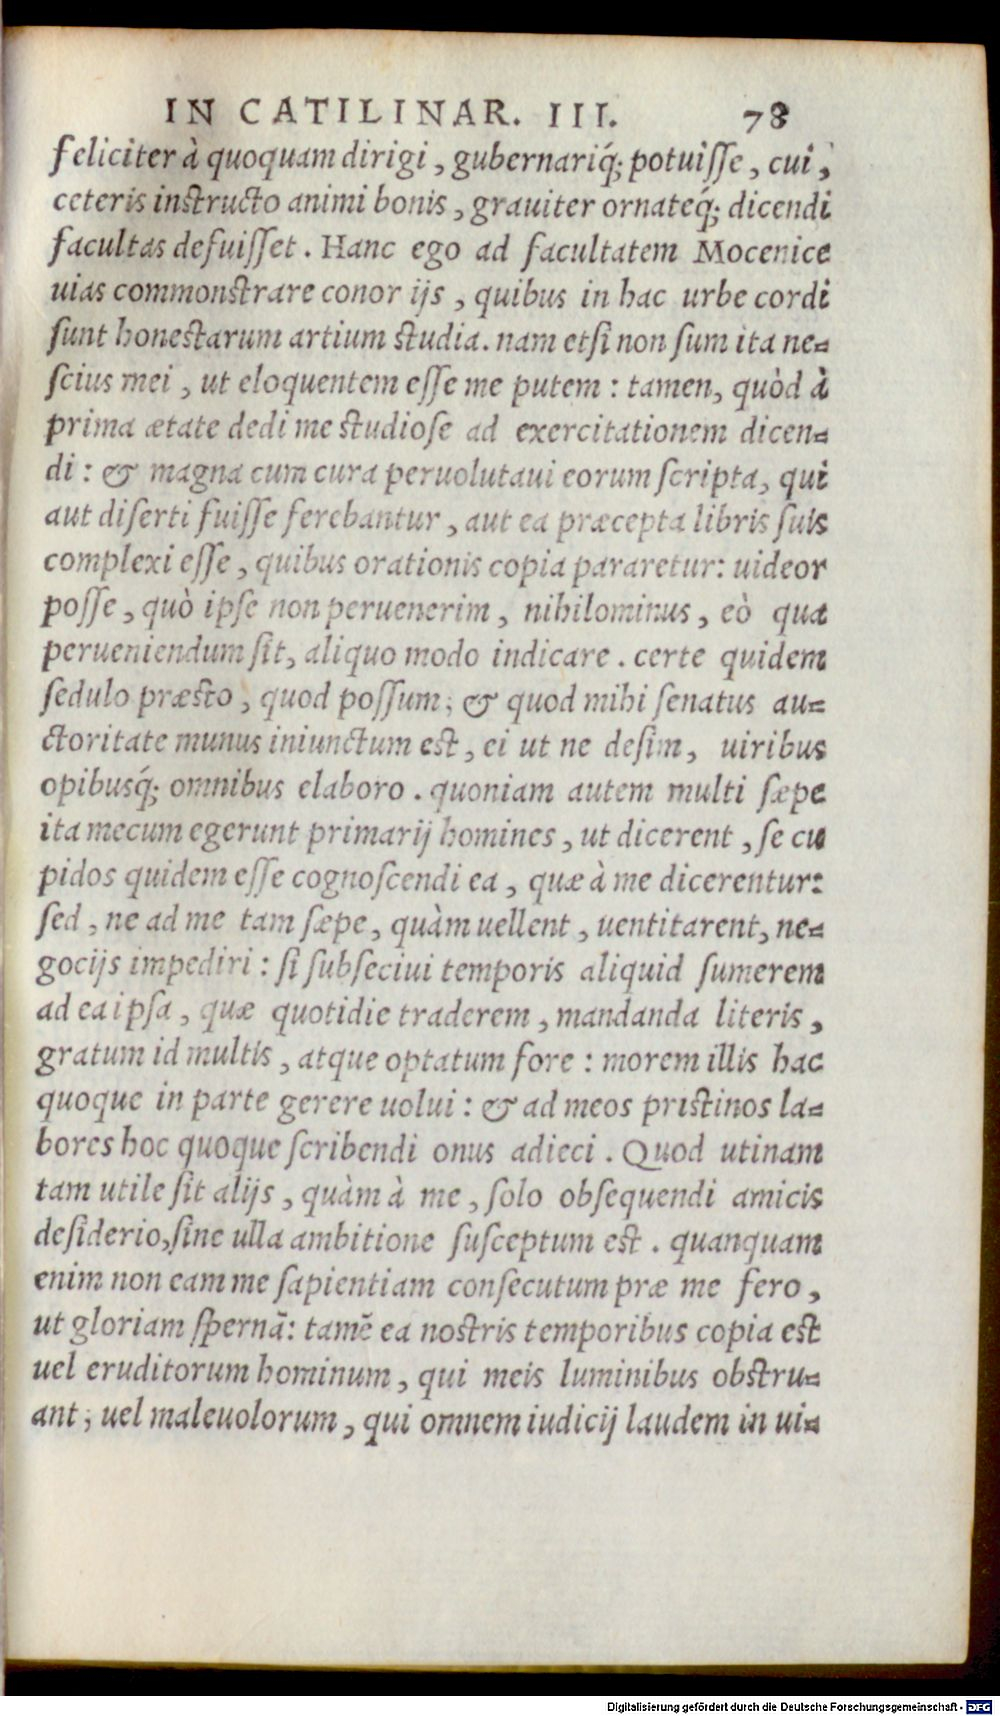 IN CATILINAR. III. 78
feliciter à quoquam dirigi, gubernariq́; potuiſſe, cui,
ceteris inſtructo animi bonis, grauiter ornateq́; dicendi
facultas defuiſſet. Hanc ego ad facultatem Mocenice
uias commonſtrare conor ijs, quibus in hac urbe cordi
ſunt honeſtarum artium ſtudia. nam etſi non ſum ita ne=
ſcius mei, ut eloquentem eſſe me putem: tamen, quòd à
prima ætate dedi me ſtudioſe ad exercitationem dicen=
di: & magna cum cura peruolutaui eorum ſcripta, qui
aut diſerti fuiſſe ferebantur, aut ea præcepta libris ſuis
complexi eſſe, quibus orationis copia pararetur: uideor
poſſe, quò ipſe non peruenerim, nihilominus, eò qua
perueniendum ſit, aliquo modo indicare. certe quidem
ſedulo præſto, quod poſſum; & quod mihi ſenatus au=
ctoritate munus iniunctum eſt, ei ut ne deſim, uiribus
opibusq́; omnibus elaboro. quoniam autem multi ſæpe
ita mecum egerunt primarij homines, ut dicerent, ſe cu
pidos quidem eſſe cognoſcendi ea, quæ à me dicerentur:
ſed, ne ad me tam ſæpe, quàm uellent, uentitarent, ne=
gocijs impediri: ſi ſubſeciui temporis aliquid ſumerem
ad ea ipſa, quæ quotidie traderem, mandanda literis,
gratum id multis, atque optatum fore: morem illis hac
quoque in parte gerere uolui: & ad meos priſtinos la=
bores hoc quoque ſcribendi onus adieci. Quod utinam
tam utile ſit alijs, quàm à me, ſolo obſequendi amicis
deſiderio, ſine ulla ambitione ſuſceptum eſt. quanquam
enim non eam me ſapientiam conſecutum præ me fero,
ut gloriam ſpernã: tamẽ ea noſtris temporibus copia eſt
uel eruditorum hominum, qui meis luminibus obſtru=
ant; uel maleuolorum, qui omnem iudicij laudem in ui=
Digitalisierung gefördert durch die Deutsche Forschungsgemeinschaft - DFG